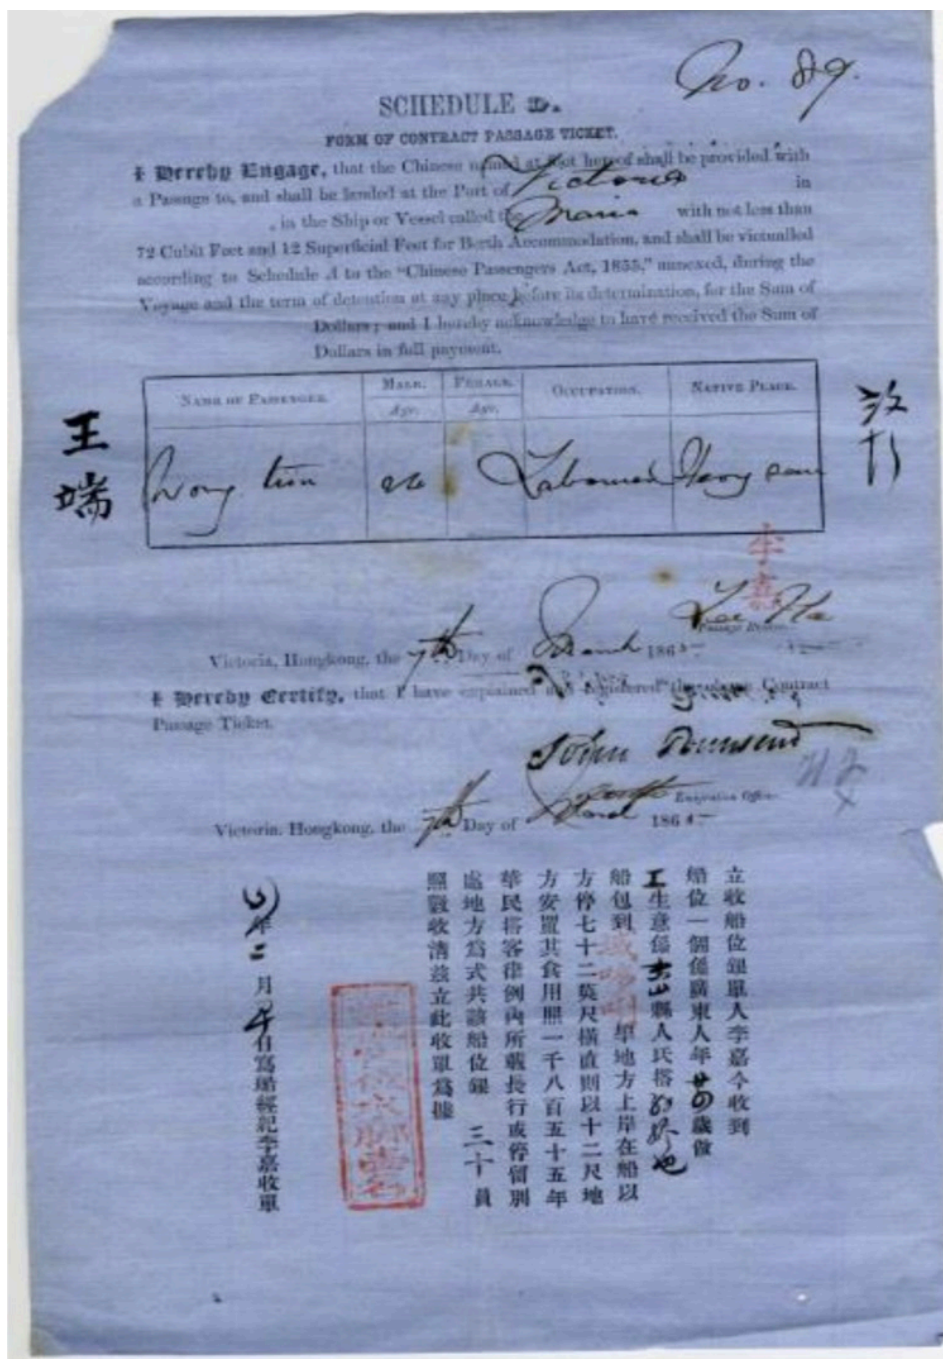 No. 89.
SCHEDULE D.
FORM OF CONTRACT PASSAGE TICKET.
I Hereby Engage, that the Chinese named at foot hereof shall be provided with
a Passage to, and shall be landed at the Port of Victoria in
, in the Ship or Vessel called the Maria with not less than
72 Cubit Feet and 12 Superficial Feet for Berth Accommodation, and shall be victualled
according to Schedule A to the "Chinese Passengers Act, 1855," annexed, during the
Voyage and the term of detention at any place before its determination, for the Sum of
Dollars; and I hereby acknowledge to have received the Sum of
Dollars in full payment.
NAME OF PASSENGER. MALE. FEMALE. OCCUPATION. NATIVE PLACE.
Age. Age.
王端
Wong
李嘉
Passage Broker.
Victoria, Hongkong, the 7th Day of March 186
I Hereby Certify, that I have explained and registered the above Contract
Passage Ticket.
John Townsend
Emigration Officer
Victoria, Hongkong, the 7th Day of 186
立收船位銀單人李嘉今收到
船位一個係廣東人年廿四歲做
工生意係山縣人氏搭
船包到域哆唎埠地方上岸在船以
方停七十二英尺橫直則以十二尺地
方安置其食用照一千八百五十五年
華民搭客律例內所載長行或停留別
處地方為式共該船位銀三十員
照數收清茲立此收單為據
年二月日寫船經紀李嘉收單